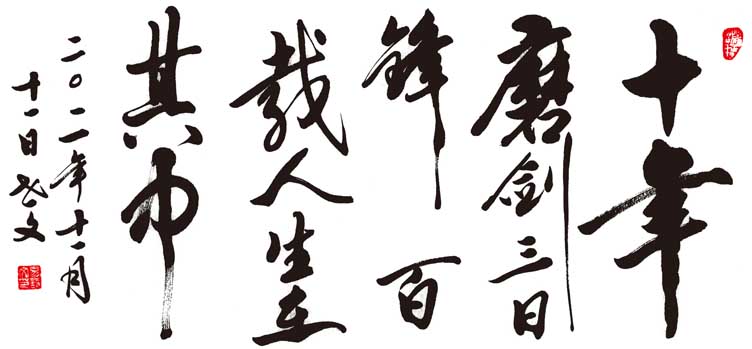 十年
磨剑三日
锋百
载人生在
其中
二〇一一年十一月
十一日文